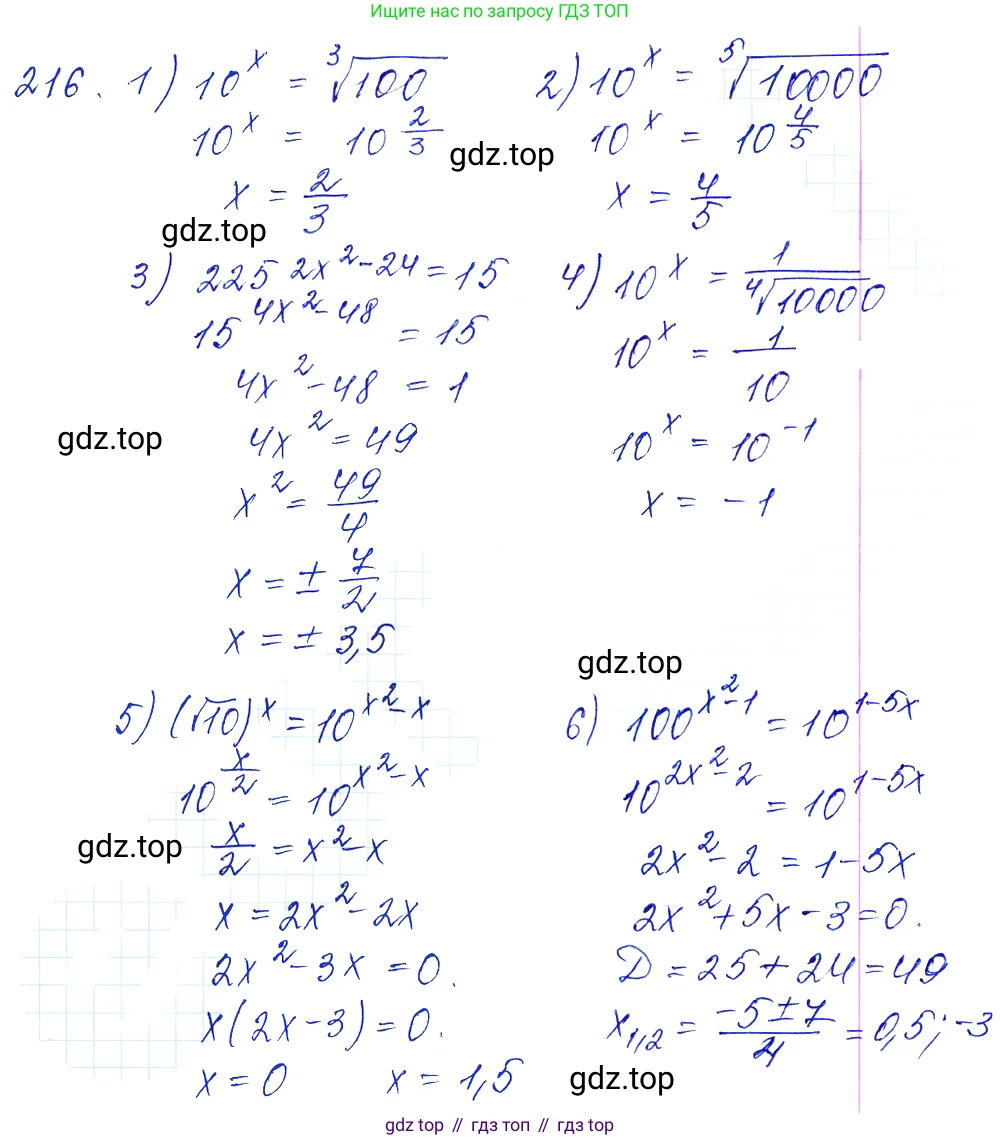 Ищите нас по запросу ГДЗ ТОП
216. 1) 10^x = ∛100
10^x = 10^(2/3)
x = 2/3
2) 10^x = ⁵√10000
10^x = 10^(4/5)
x = 4/5
gdz.top
gdz.top
3) 225^(2x²-24) = 15
15^(4x²-48) = 15
4x² - 48 = 1
4x² = 49
x² = 49/4
x = ± 7/2
x = ± 3,5
gdz.top
4) 10^x = 1/⁴√10000
10^x = 1/10
10^x = 10^(-1)
x = -1
gdz.top
5) (√10)^x = 10^(x²-x)
10^(x/2) = 10^(x²-x)
x/2 = x² - x
x = 2x² - 2x
2x² - 3x = 0.
x(2x-3) = 0.
x = 0 x = 1,5
gdz.top
6) 100^(x²-1) = 10^(1-5x)
10^(2x²-2) = 10^(1-5x)
2x² - 2 = 1 - 5x
2x² + 5x - 3 = 0.
D = 25 + 24 = 49
x₁,₂ = (-5 ± 7)/4 = 0,5; -3
gdz.top
gdz.top // гдз топ // gdz top // гдз топ